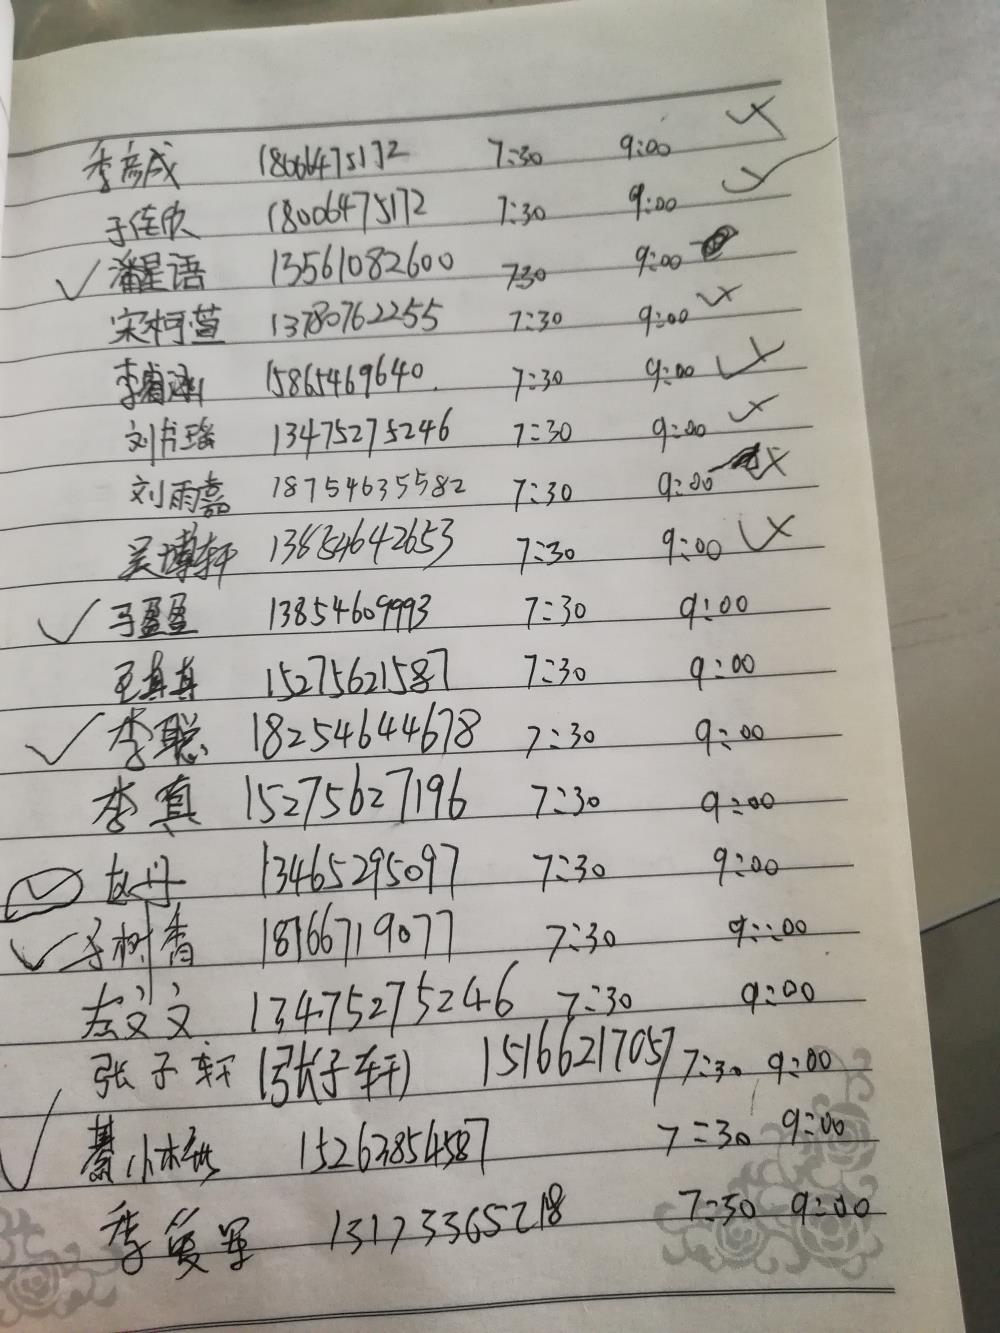 李彦成 18006475172 7:30 9:00
于佳欣 18006475172 7:30 9:00
潘星语 13561082600 7:30 9:00
宋柯萱 13780762255 7:30 9:00
李睿涵 15865469640. 7:30 9:00
刘书瑶 13475275246 7:30 9:00
刘雨嘉 18754635582 7:30 9:00
吴博轩 13854642653 7:30 9:00
马盈盈 13854609993 7:30 9:00
王真真 15275621587 7:30 9:00
李聪 18254644678 7:30 9:00
李真 15275627196 7:30 9:00
赵丹 13465295097 7:30 9:00
于树香 18766719077 7:30 9:00
左文文 13475275246 7:30 9:00
张子轩(张子轩) 15166217057 7:30 9:00
綦小 15263854587 7:30 9:00
李军 13173365218 7:30 9:00